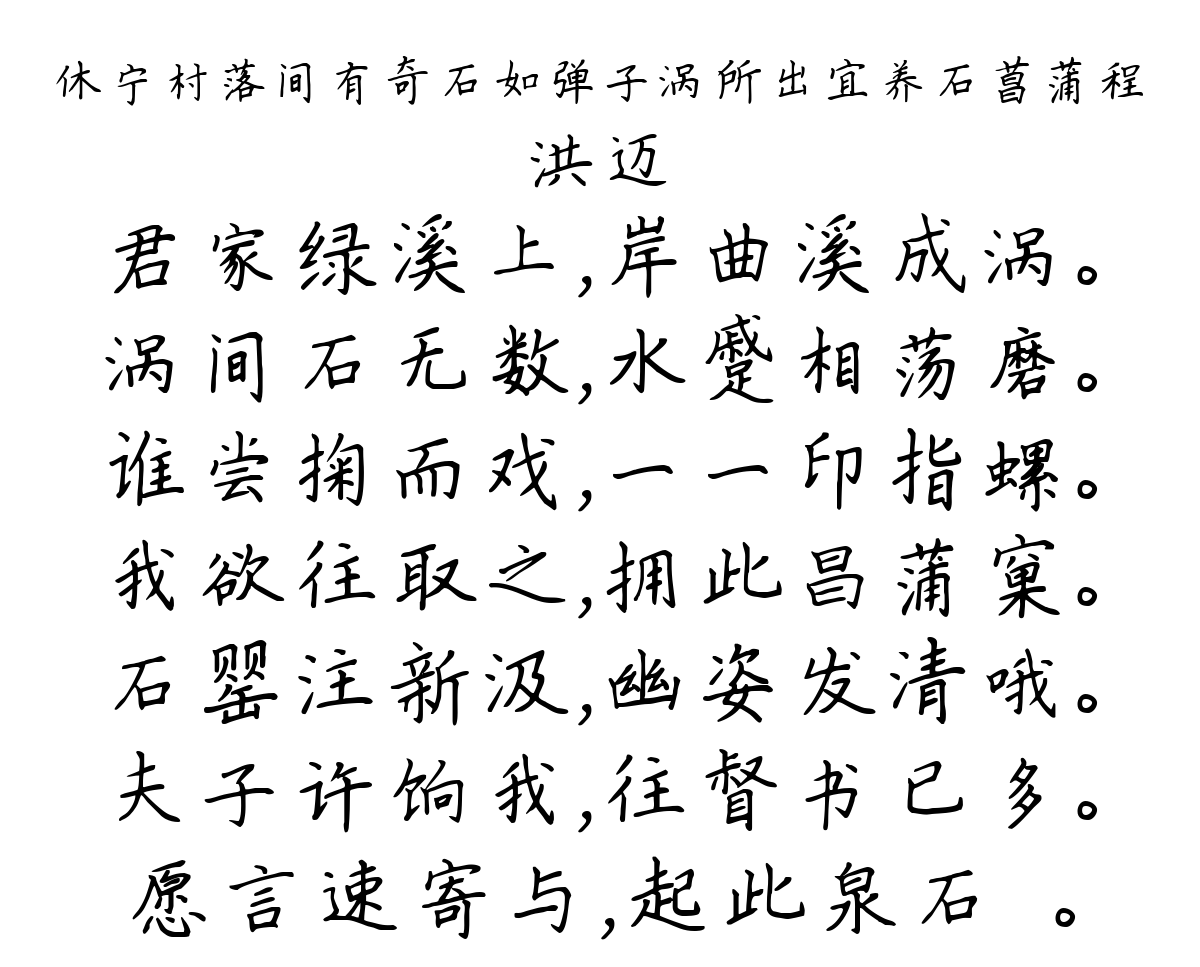 休宁村落间有奇石如弹子涡所出宜养石菖蒲程
洪迈
君家绿溪上,岸曲溪成涡。
涡间石无数,水蹙相荡磨。
谁尝掬而戏,一一印指螺。
我欲往取之,拥此昌蒲窠。
石罂注新汲,幽姿发清哦。
夫子许饷我,往督书已多。
愿言速寄与,起此泉石 。